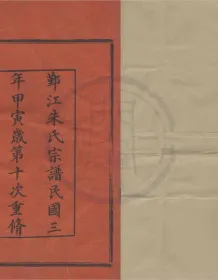 鄞江朱氏宗譜民國三
年甲寅歲第十次重脩